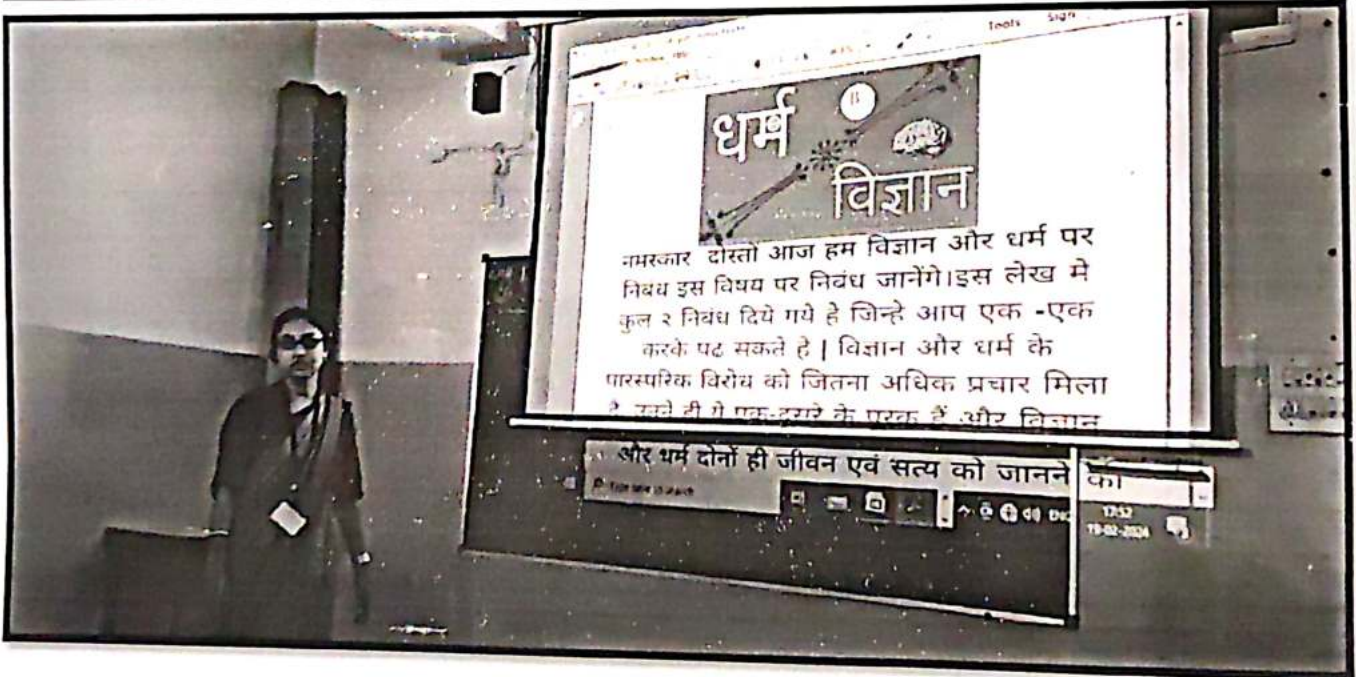 Tools Sign
धर्म
विज्ञान
नमस्कार दोस्तो आज हम विज्ञान और धर्म पर
निबंध इस विषय पर निबंध जानेंगे।इस लेख मे
कुल २ निबंध दिये गये हे जिन्हे आप एक -एक
करके पढ सकते हे | विज्ञान और धर्म के
पारस्परिक विरोध को जितना अधिक प्रचार मिला
है उतने ही ये एक-दूसरे के पूरक हैं और विज्ञान
और धर्म दोनों ही जीवन एवं सत्य को जानने का
Type here to search
ENG
17:52
19-02-2024